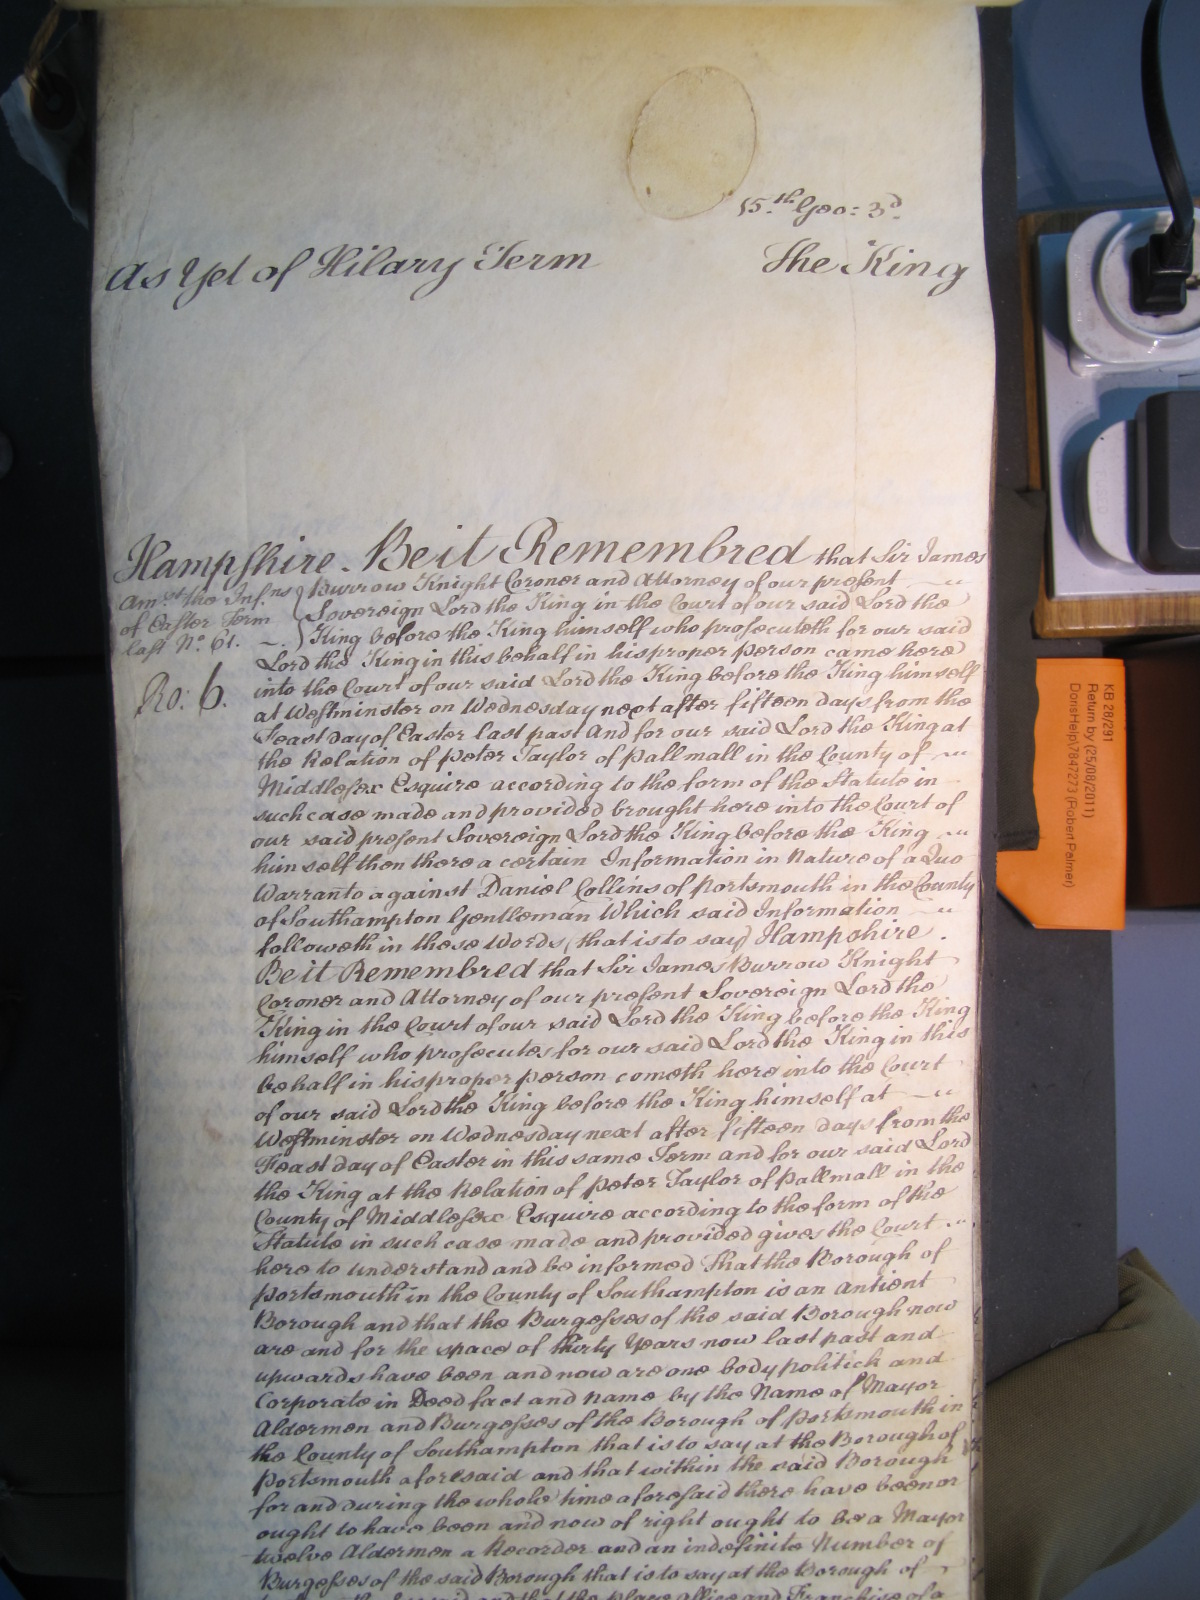 15.th Geo: 3d.
As Yet of Hilary Term The King
Hampshire. Be it Remembred that Sir James
Burrow Knight Coroner and Attorney of our present
Sovereign Lord the King in the Court of our said Lord the
King before the King himself who prosecuteth for our said
Am:st the Inf:ns
of Easter Term
last No. 61.
Ro: 6.
Lord the King in this behalf in his proper person came here
into the Court of our said Lord the King before the King himself
at Westminster on Wednesday next after fifteen days from the
Feast day of Easter last past And for our said Lord the King at
the Relation of Peter Taylor of Pallmall in the County of
Middlesex Esquire according to the form of the Statute in
such case made and provided brought here into the Court of
our said present Sovereign Lord the King before the King
himself then there a certain Information in Nature of a Quo
Warranto against Daniel Collins of Portsmouth in the County
of Southampton Gentleman Which said Information
followeth in these Words (that is to say) Hampshire.
Be it Remembred that Sir James Burrow Knight
Coroner and Attorney of our present Sovereign Lord the
King in the Court of our said Lord the King before the King
himself who prosecutes for our said Lord the King in this
behalf in his proper person cometh here into the Court
of our said Lord the King before the King himself at
Westminster on Wednesday next after fifteen days from the
Feast day of Easter in this same Term and for our said Lord
the King at the Relation of Peter Taylor of Pallmall in the
County of Middlesex Esquire according to the form of the
Statute in such case made and provided gives the Court
here to understand and be informed That the Borough of
Portsmouth in the County of Southampton is an antient
Borough and that the Burgesses of the said Borough now
are and for the space of thirty Years now last past and
upwards have been and now are one body politick and
Corporate in Deed fact and name by the Name of Mayor
Aldermen and Burgesses of the Borough of Portsmouth in
the County of Southampton that is to say at the Borough of
Portsmouth aforesaid and that within the said Borough
for and during the whole time aforesaid there have been or
ought to have been and now of right ought to be a Mayor
twelve Aldermen a Recorder and an indefinite Number of
Burgesses of the said Borough that is to say at the Borough of
and that the place office and Franchise of a
KB 28/291
Return by (25/08/2011)
DorisHelp\7847273 (Robert Palmer)